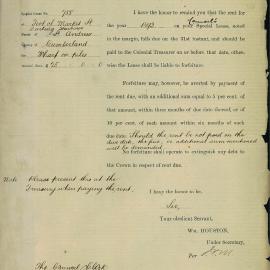 Special Lease No. 755
Foot of Market St
Darling Harbour
Parish of St. Andrew
County of Cumberland
Wharf on piles
Annual Rent £75 . 0 . 0
I have the honor to remind you that the rent for
the year 1893 on your Special Lease, noted
in the margin, falls due on the 31st instant, and should
be paid to the Colonial Treasurer on or before that date, other-
wise the Lease shall be liable to forfeiture.
Forfeiture may, however, be averted by payment of
the rent due, with an additional sum equal to 5 per cent. of
that amount, within three months of due date thereof, or of
10 per cent. of such amount within six months of such
due date. Should the rent be not paid on the
due date, the fine, or additional sum mentioned
will be demanded.
No forfeiture shall operate to extinguish any debt to
the Crown in respect of rent due.
Note Please present this at the
Treasury when paying the rent.
I have the honor to be,
Sir,
Your obedient Servant,
WM. HOUSTON,
Under Secretary,
Per
The Council Clerk